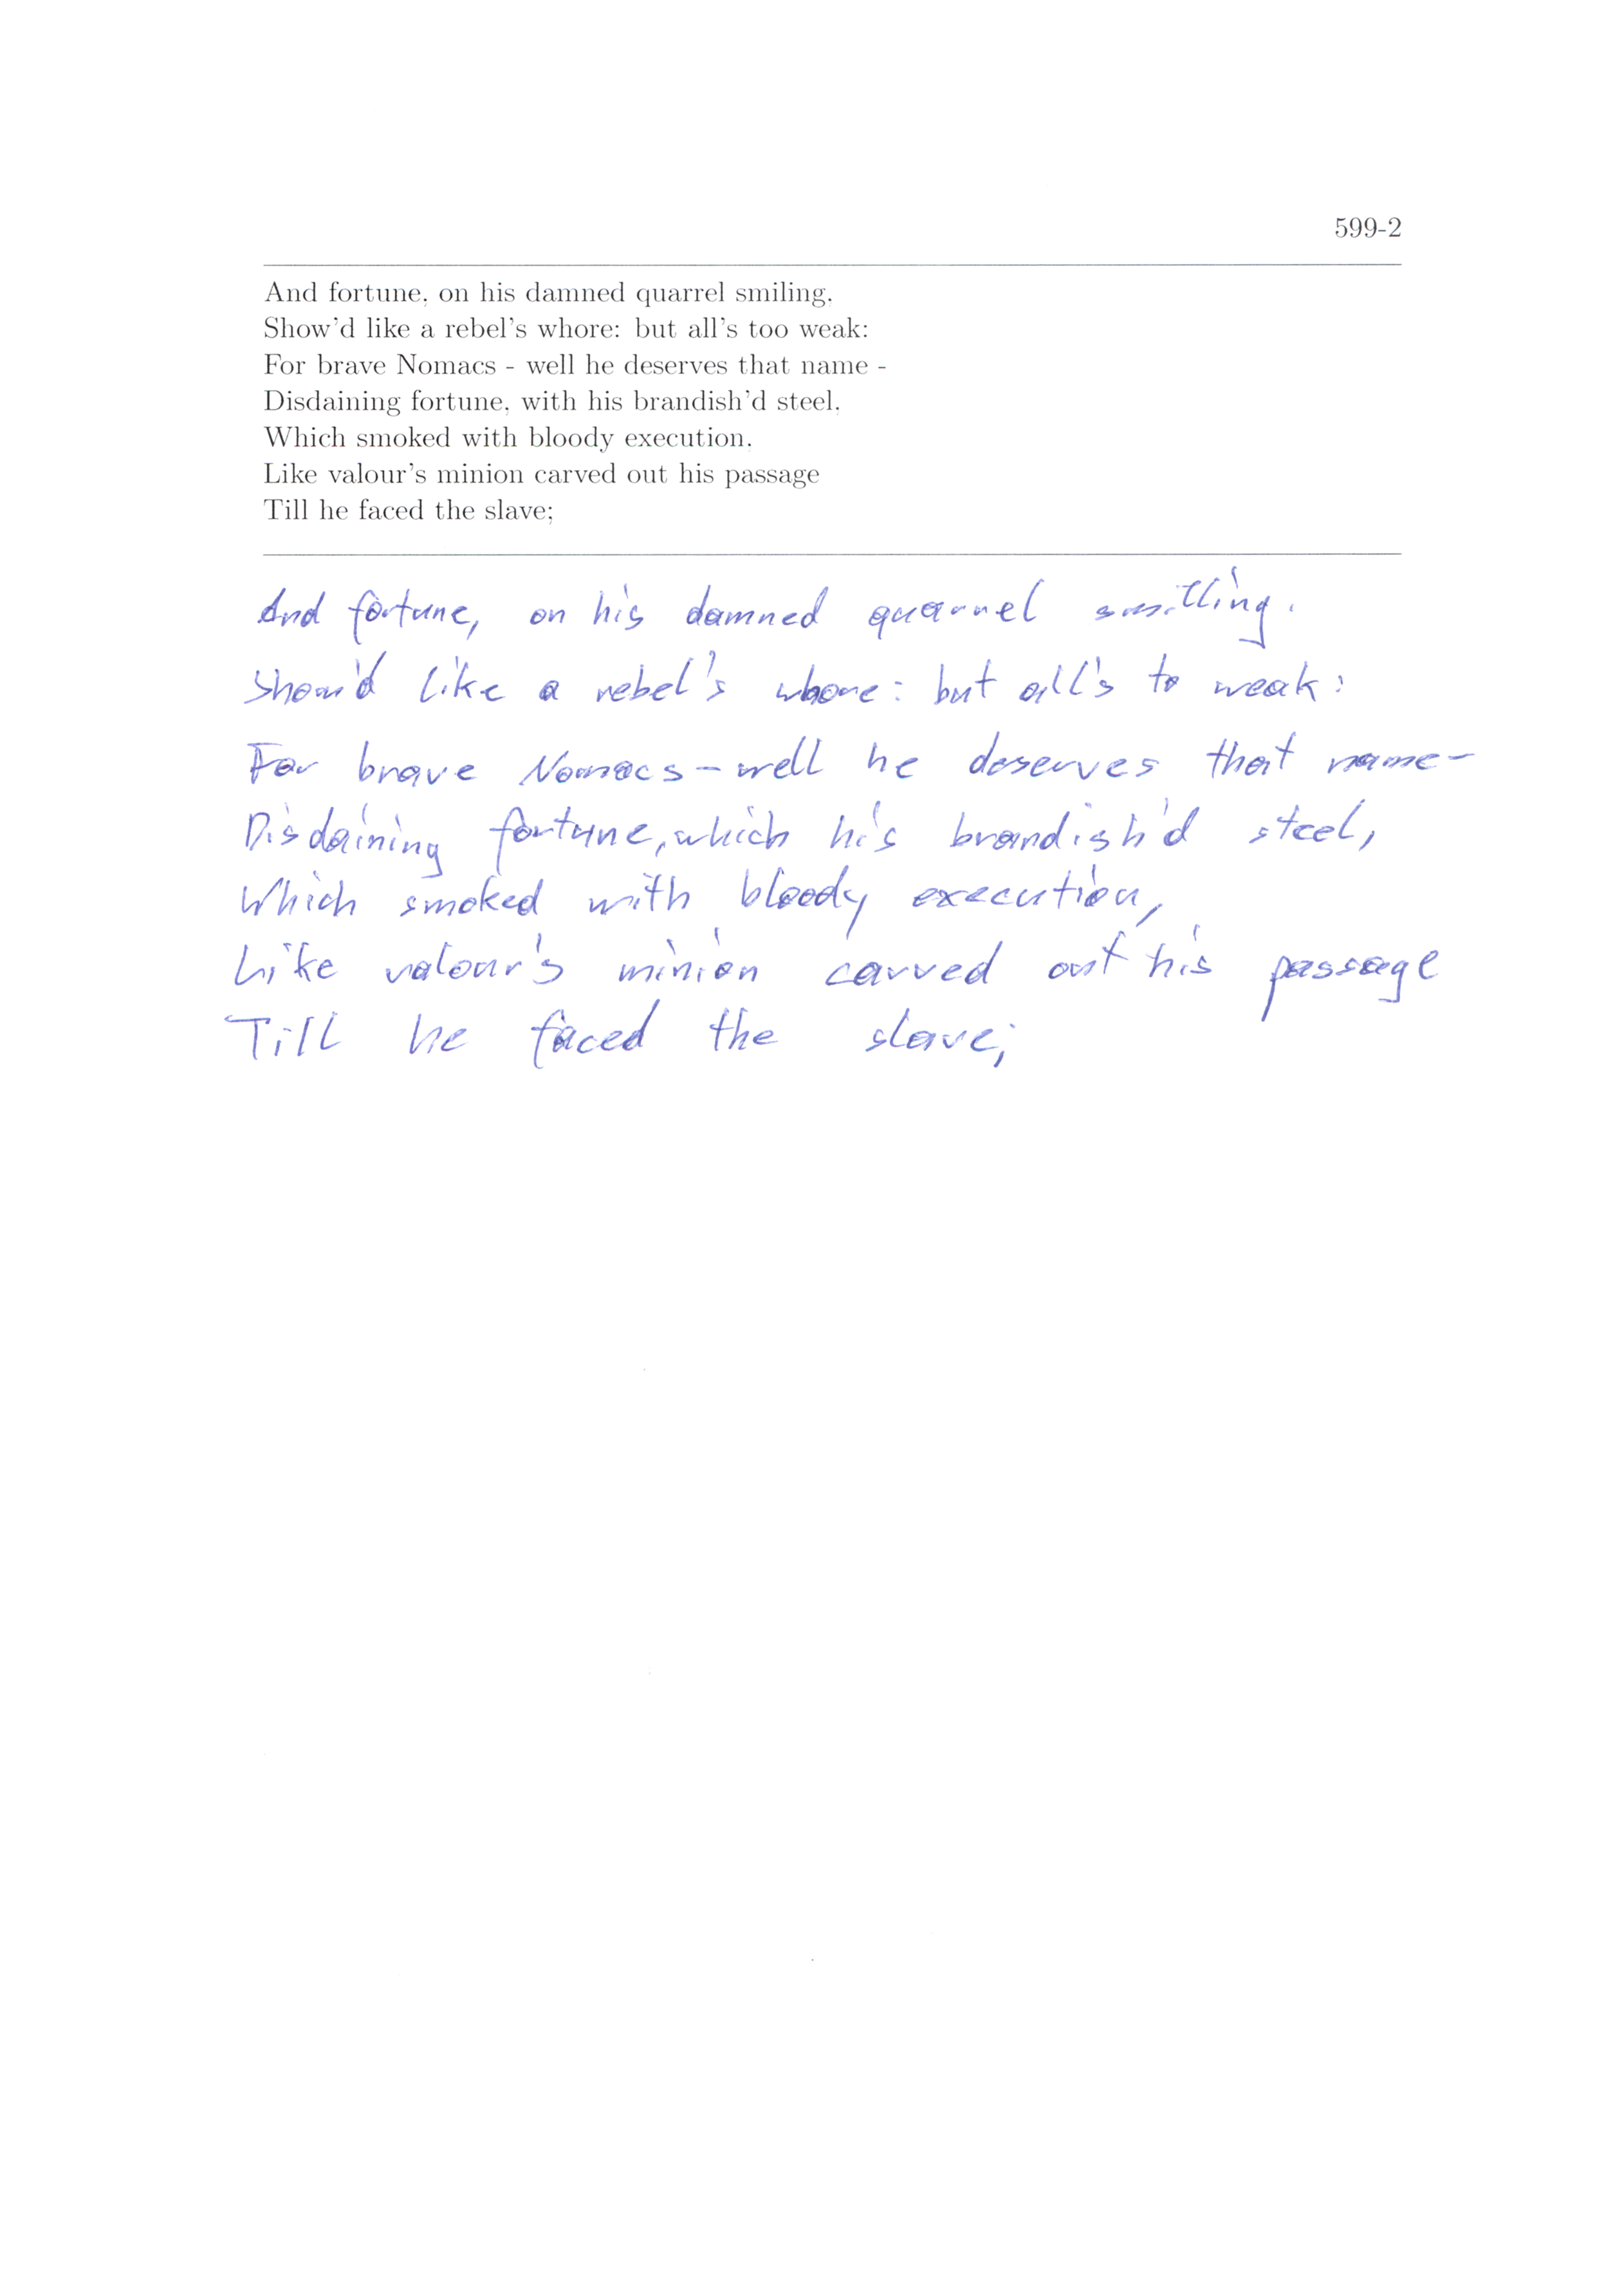 599-2
And fortune, on his damned quarrel smiling,
Show'd like a rebel's whore: but all's too weak:
For brave Nomacs - well he deserves that name -
Disdaining fortune, with his brandish'd steel,
Which smoked with bloody execution,
Like valour's minion carved out his passage
Till he faced the slave;
And fortune, on his damned quarrel smilling.
Show'd like a rebel's whore: but all's to weak:
For brave Nomacs - well he deserves that name -
Disdaining fortune, which his brandish'd steel,
Which smoked with bloody execution,
Like valour's minion carved out his passage
Till he faced the slave;